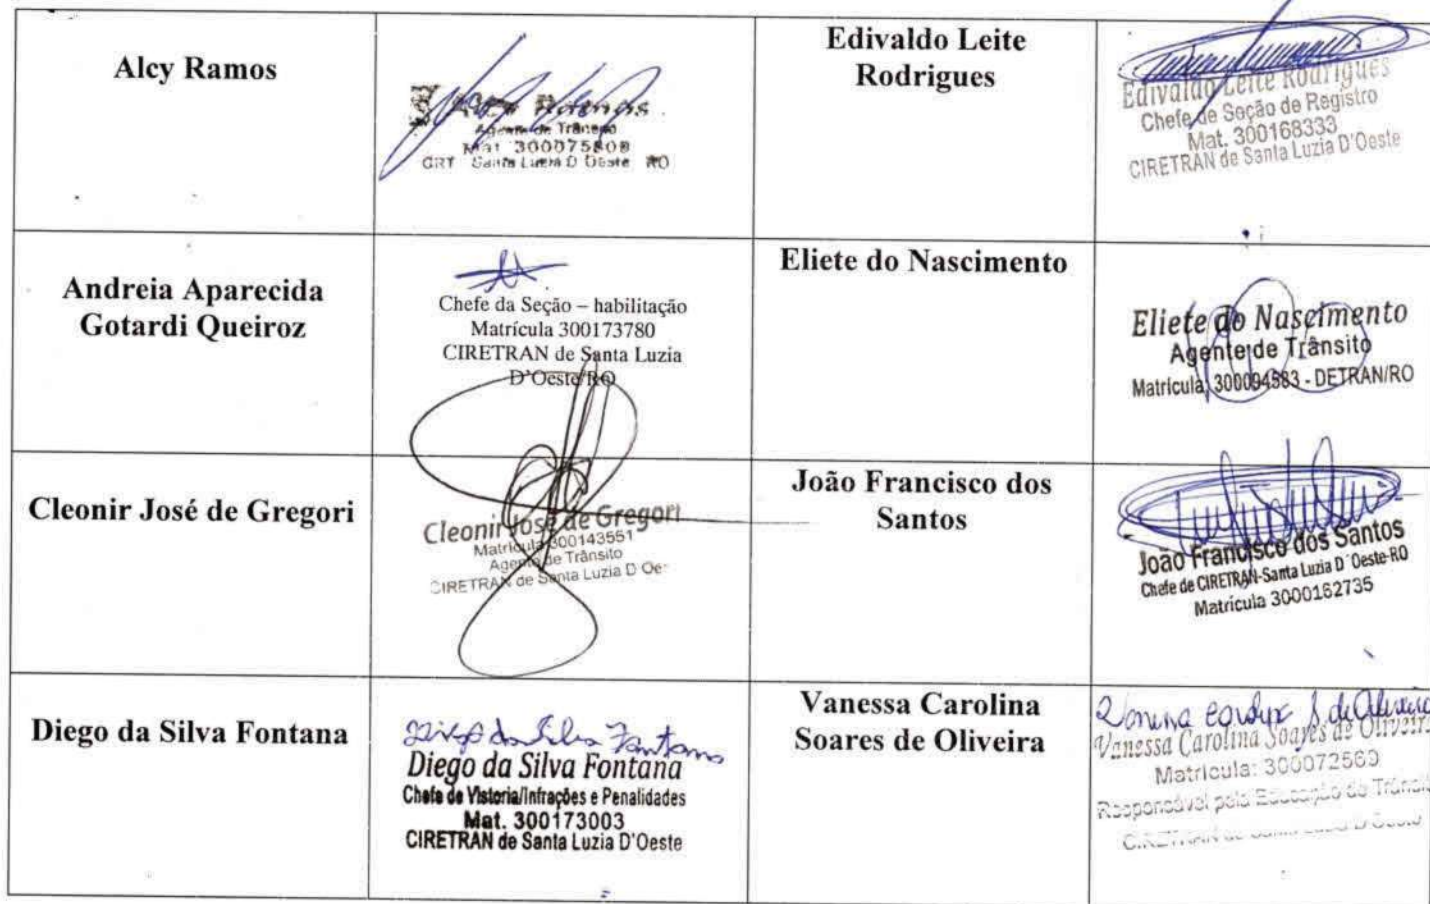 Alcy Ramos
Agente de Trânsito
Mat 300075808
CRT Santa Luzia D Oeste RO
Edivaldo Leite
Rodrigues
Edivaldo Leite Rodrigues
Chefe de Seção de Registro
Mat. 300168333
CIRETRAN de Santa Luzia D'Oeste
Andreia Aparecida
Gotardi Queiroz
Chefe da Seção – habilitação
Matrícula 300173780
CIRETRAN de Santa Luzia
D'Oeste/RO
Eliete do Nascimento
Eliete do Nascimento
Agente de Trânsito
Matrícula: 300094583 - DETRAN/RO
Cleonir José de Gregori
Cleonir José de Gregori
Matrícula 300143551
Agente de Trânsito
CIRETRAN de Santa Luzia D Oe
João Francisco dos
Santos
João Francisco dos Santos
Chefe de CIRETRAN-Santa Luzia D´Oeste-RO
Matrícula 3000162735
Diego da Silva Fontana
Diego da Silva Fontana
Diego da Silva Fontana
Chefe de Vistoria/Infrações e Penalidades
Mat. 300173003
CIRETRAN de Santa Luzia D'Oeste
Vanessa Carolina
Soares de Oliveira
Vanessa Carolina S. de Oliveira
Vanessa Carolina Soares de Oliveira
Matrícula: 300072569
Responsável pela Educação de Trânsit
CIRETRAN de Santa Luzia D'Oeste